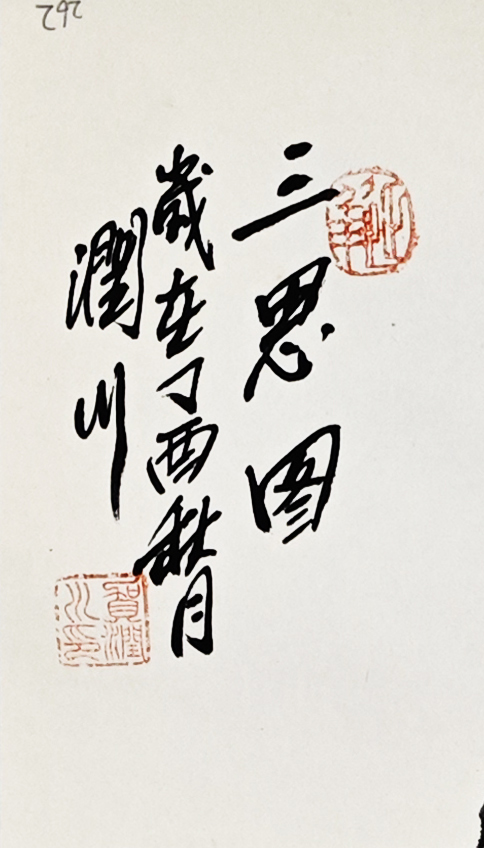 三思图
歲在丁酉秋月
潤川
賀潤川印